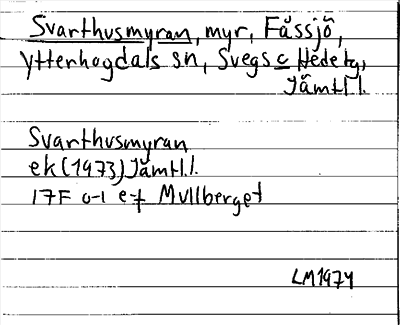 Svarthusmyran, myr, Fåssjö,
Ytterhogdals sn, Svegs o Hede tg,
Jämtl l.
Svarthusmyran
ek (1973) Jämtl.l.
17F 0-1 e-f Mullberget
LM 1974